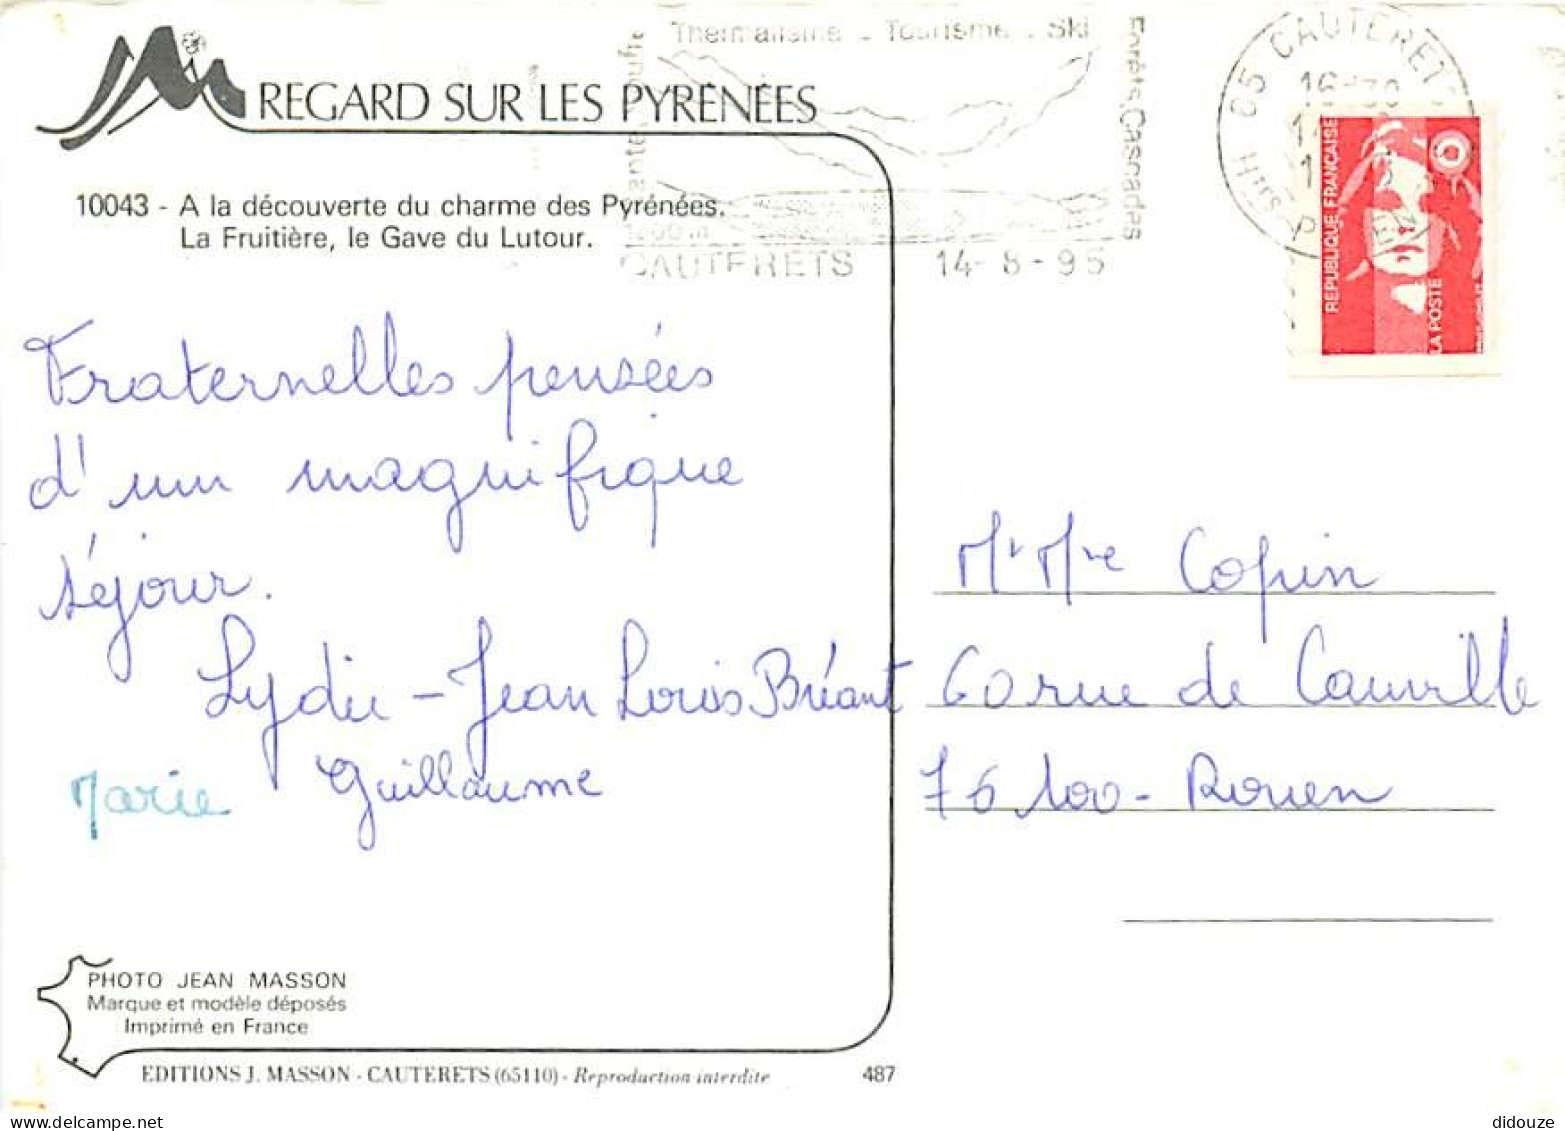 REGARD SUR LES PYRÉNÉES
Thermalisme - Tourisme - Ski
Forêts, Cascades
CAUTERETS 14-8-95
65 CAUTERETS
REPUBLIQUE FRANÇAISE
LA POSTE
10043 - A la découverte du charme des Pyrénées.
La Fruitière, le Gave du Lutour.
Fraternelles pensées
d'un magnifique
séjour.
Lydie - Jean Louis Bréant
Marie Guillaume
Mr Mme Copin
60 rue de
76100 - Rouen
PHOTO JEAN MASSON
Marque et modèle déposés
Imprimé en France
EDITIONS J. MASSON - CAUTERETS (65110) - Reproduction interdite 487
didouze